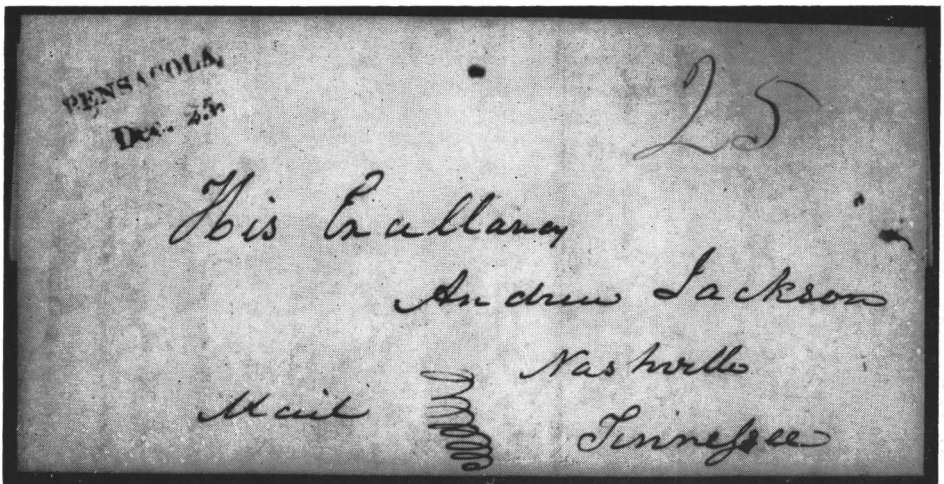 PENSACOLA,
Dec. 25.
25
His Excellancy
Andrew Jackson
Nashville
Mail
Tennessee